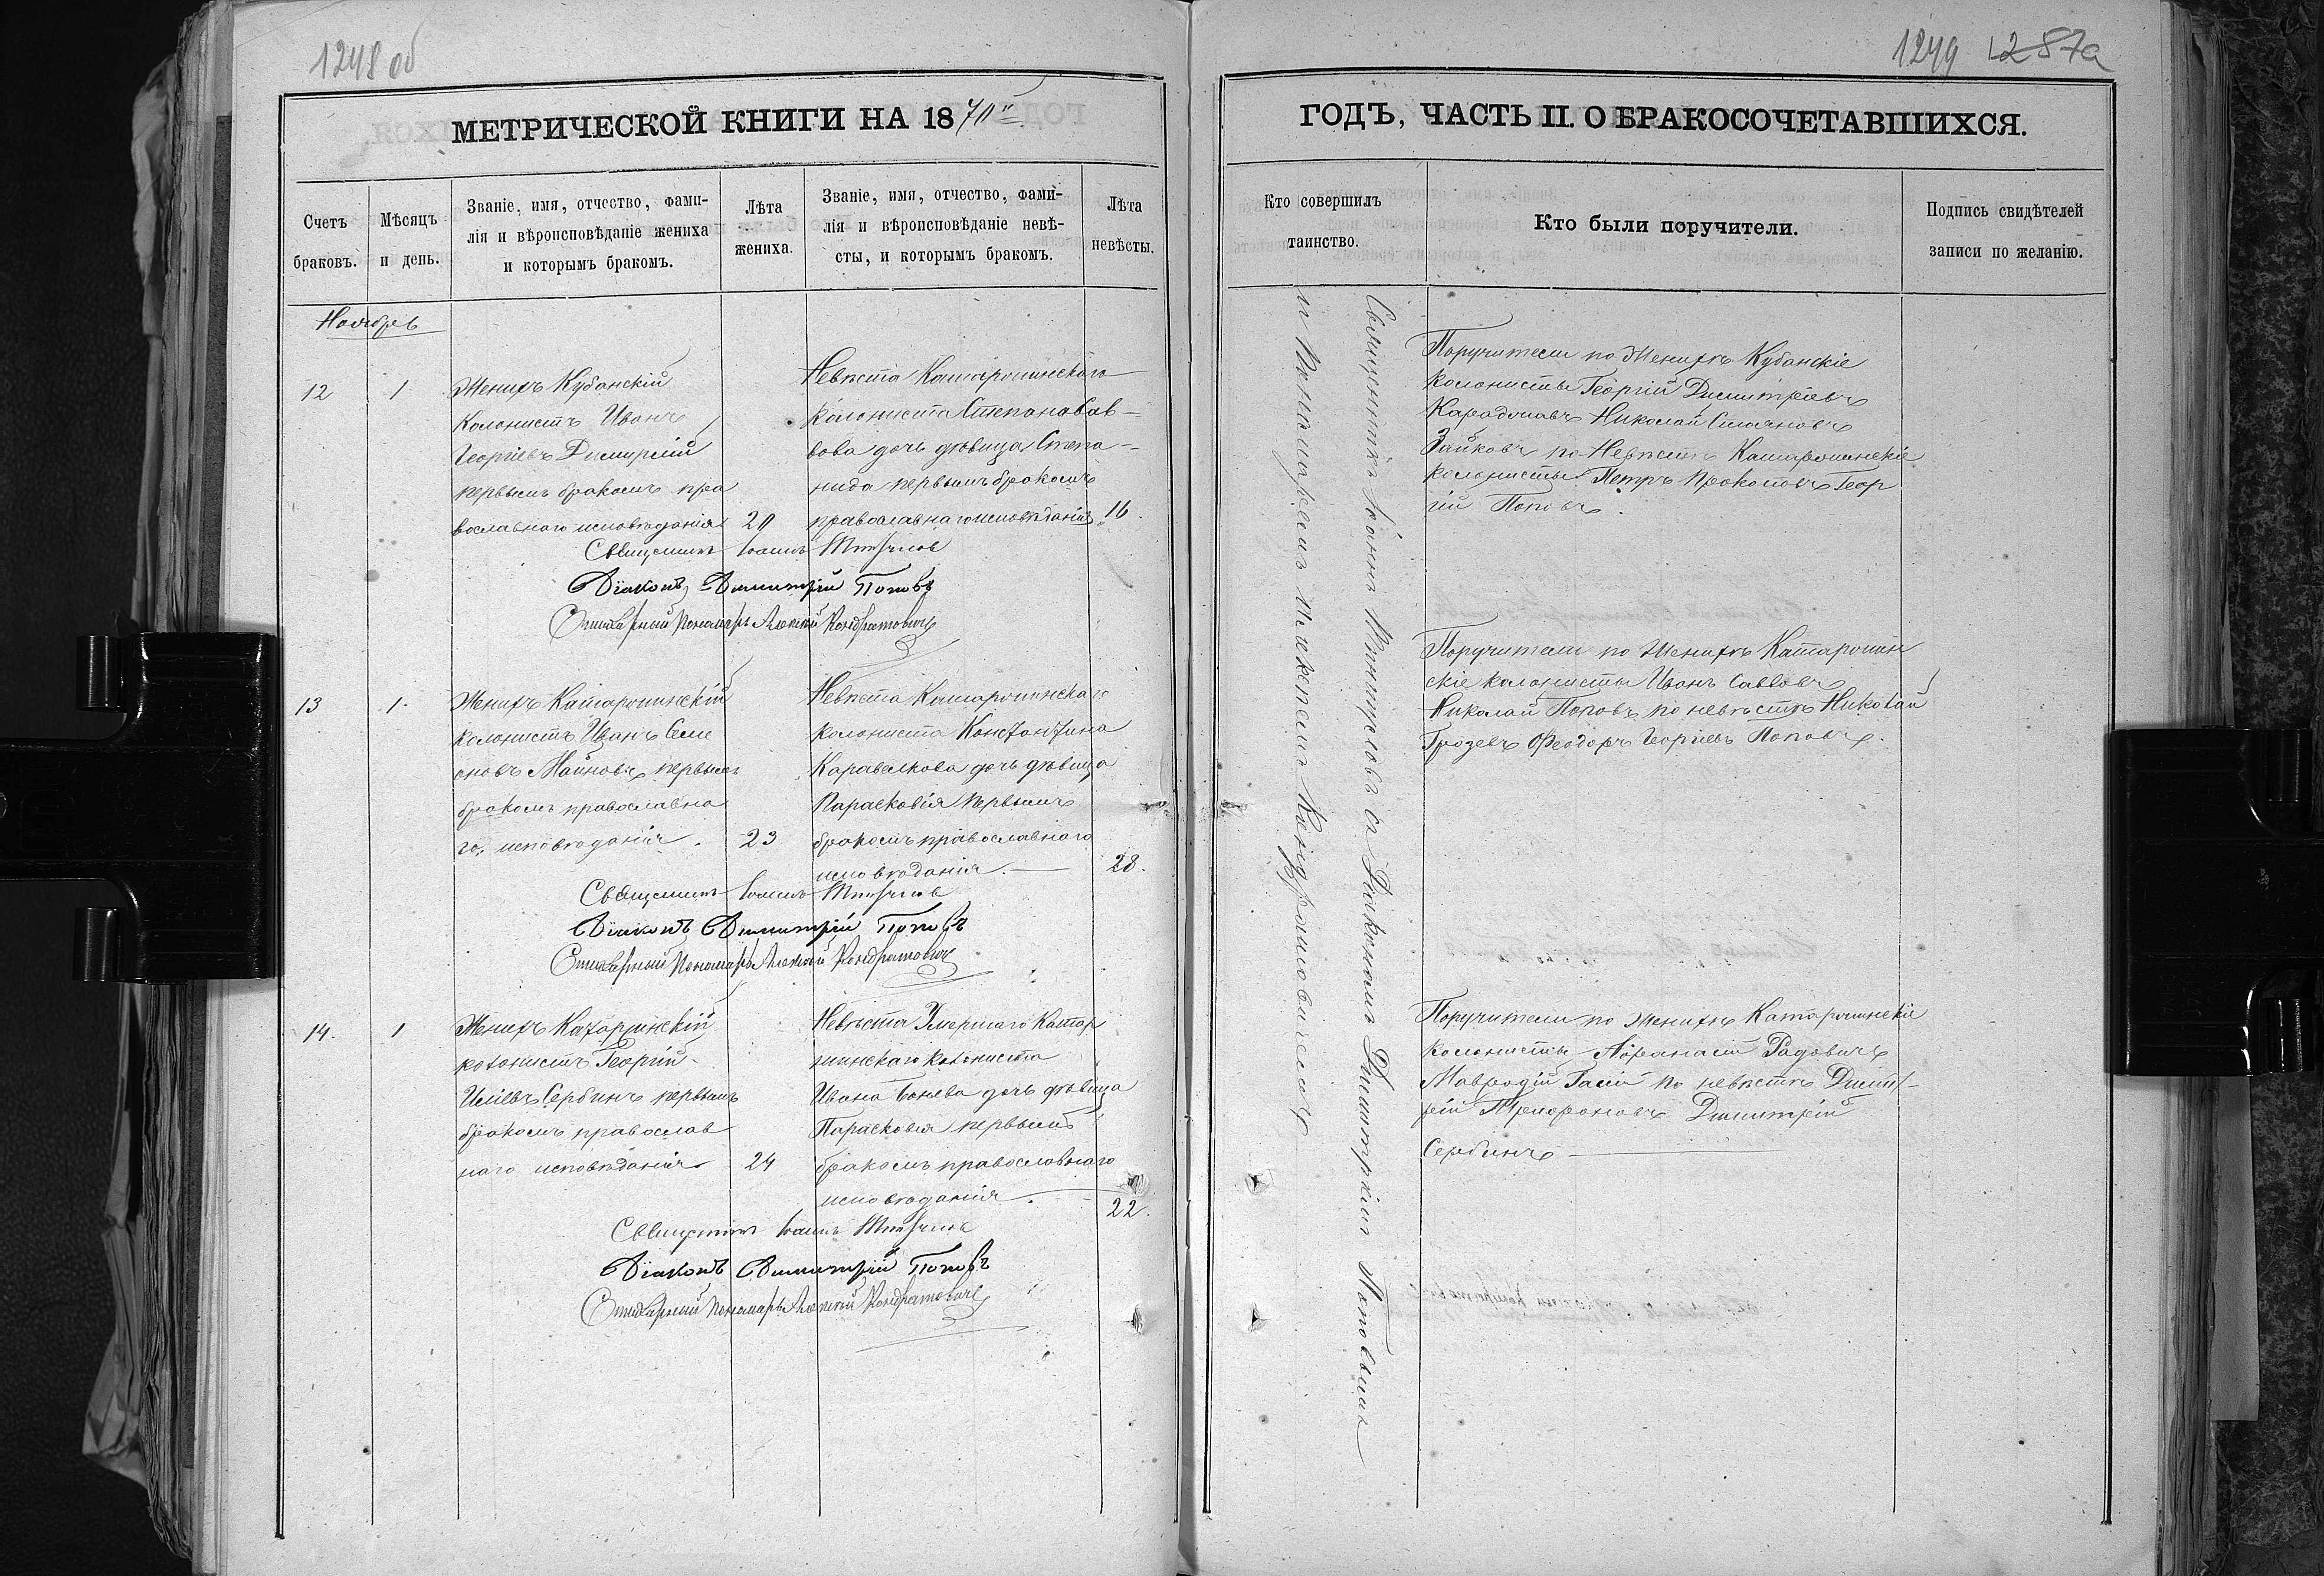 1248 об
МЕТРИЧЕСКОЙ КНИГИ НА 1870й
Счетъ браковъ.
Мѣсяцъ и день.
Званіе, имя, отчество, фами-
лія и вѣроисповѣданіе жениха
и которымъ бракомъ.
Лѣта
жениха.
Званіе, имя, отчество, фами-
лія и вѣроисповѣданіе невѣ-
сты, и которымъ бракомъ.
Лѣта
невѣсты.
Ноябрь
12
1
Женихъ Кубанскій
колонистъ Иванъ
Георгіевъ
первымъ бракомъ пра
вославнаго исповѣданія
20
Невѣста Катаржинскаго
колониста Степана Сав-
вова дочь дѣвица Степа-
нида первымъ бракомъ
православнаго исповѣданія
16.
Священникъ Іоаннъ
Діаконъ Димитрій Поповъ
Стихарный Пономарь Алексій Кондратовичъ
13
1.
Женихъ Катаржинскій
колонистъ Иванъ Семе
оновъ Майновъ первымъ
бракомъ православна
го исповѣданія.
23
Невѣста Катаржинскаго
колониста Константина
Каравелкова дочь дѣвица
Парасковія первымъ
бракомъ православнаго
исповѣданія.
28.
Священникъ Іоаннъ
Діаконъ Димитрій Поповъ
Стихарный Пономарь Алексій Кондратовичъ
14.
1
Женихъ Катаржинскій
колонистъ Георгій
Иліевъ Сербинъ первымъ
бракомъ православ
наго исповѣданія
24
Невѣста Умершаго Катар
жинскаго колониста
Ивана Бонева дочь дѣвица
Парасковія первымъ
бракомъ православнаго
исповѣданія.
22.
Священникъ Іоаннъ
Діаконъ Димитрій Поповъ
Стихарный Пономарь Алексій Кондратовичъ
1249 1287а
ГОДЪ, ЧАСТЬ II. О БРАКОСОЧЕТАВШИХСЯ.
Кто совершилъ
таинство.
Кто были поручители.
Подпись свидѣтелей
записи по желанію.
Священникъ Іоаннъ съ Діакономъ Димитріемъ Поповымъ
и Пономаремъ Алексѣемъ Кондратовичемъ
Поручители по Женихѣ Кубанскіе
колонисты Георгій Димитріевъ
Николай Стояновъ
Зайковъ по Невѣстѣ Катаржинскіе
колонисты Петръ Прокоповъ Геор
гій Поповъ.
Поручители по Женихѣ Катаржин
скіе колонисты Иванъ Саввовъ
Николай Поповъ по невѣстѣ Николай
Грозевъ Феодоръ Георгіевъ Поповъ.
Поручители по Женихѣ Катаржинскіе
колонисты Афанасій Радовичъ
Мавродій по невѣстѣ Димит-
рій Трифоновъ Димитрій
Сербинъ